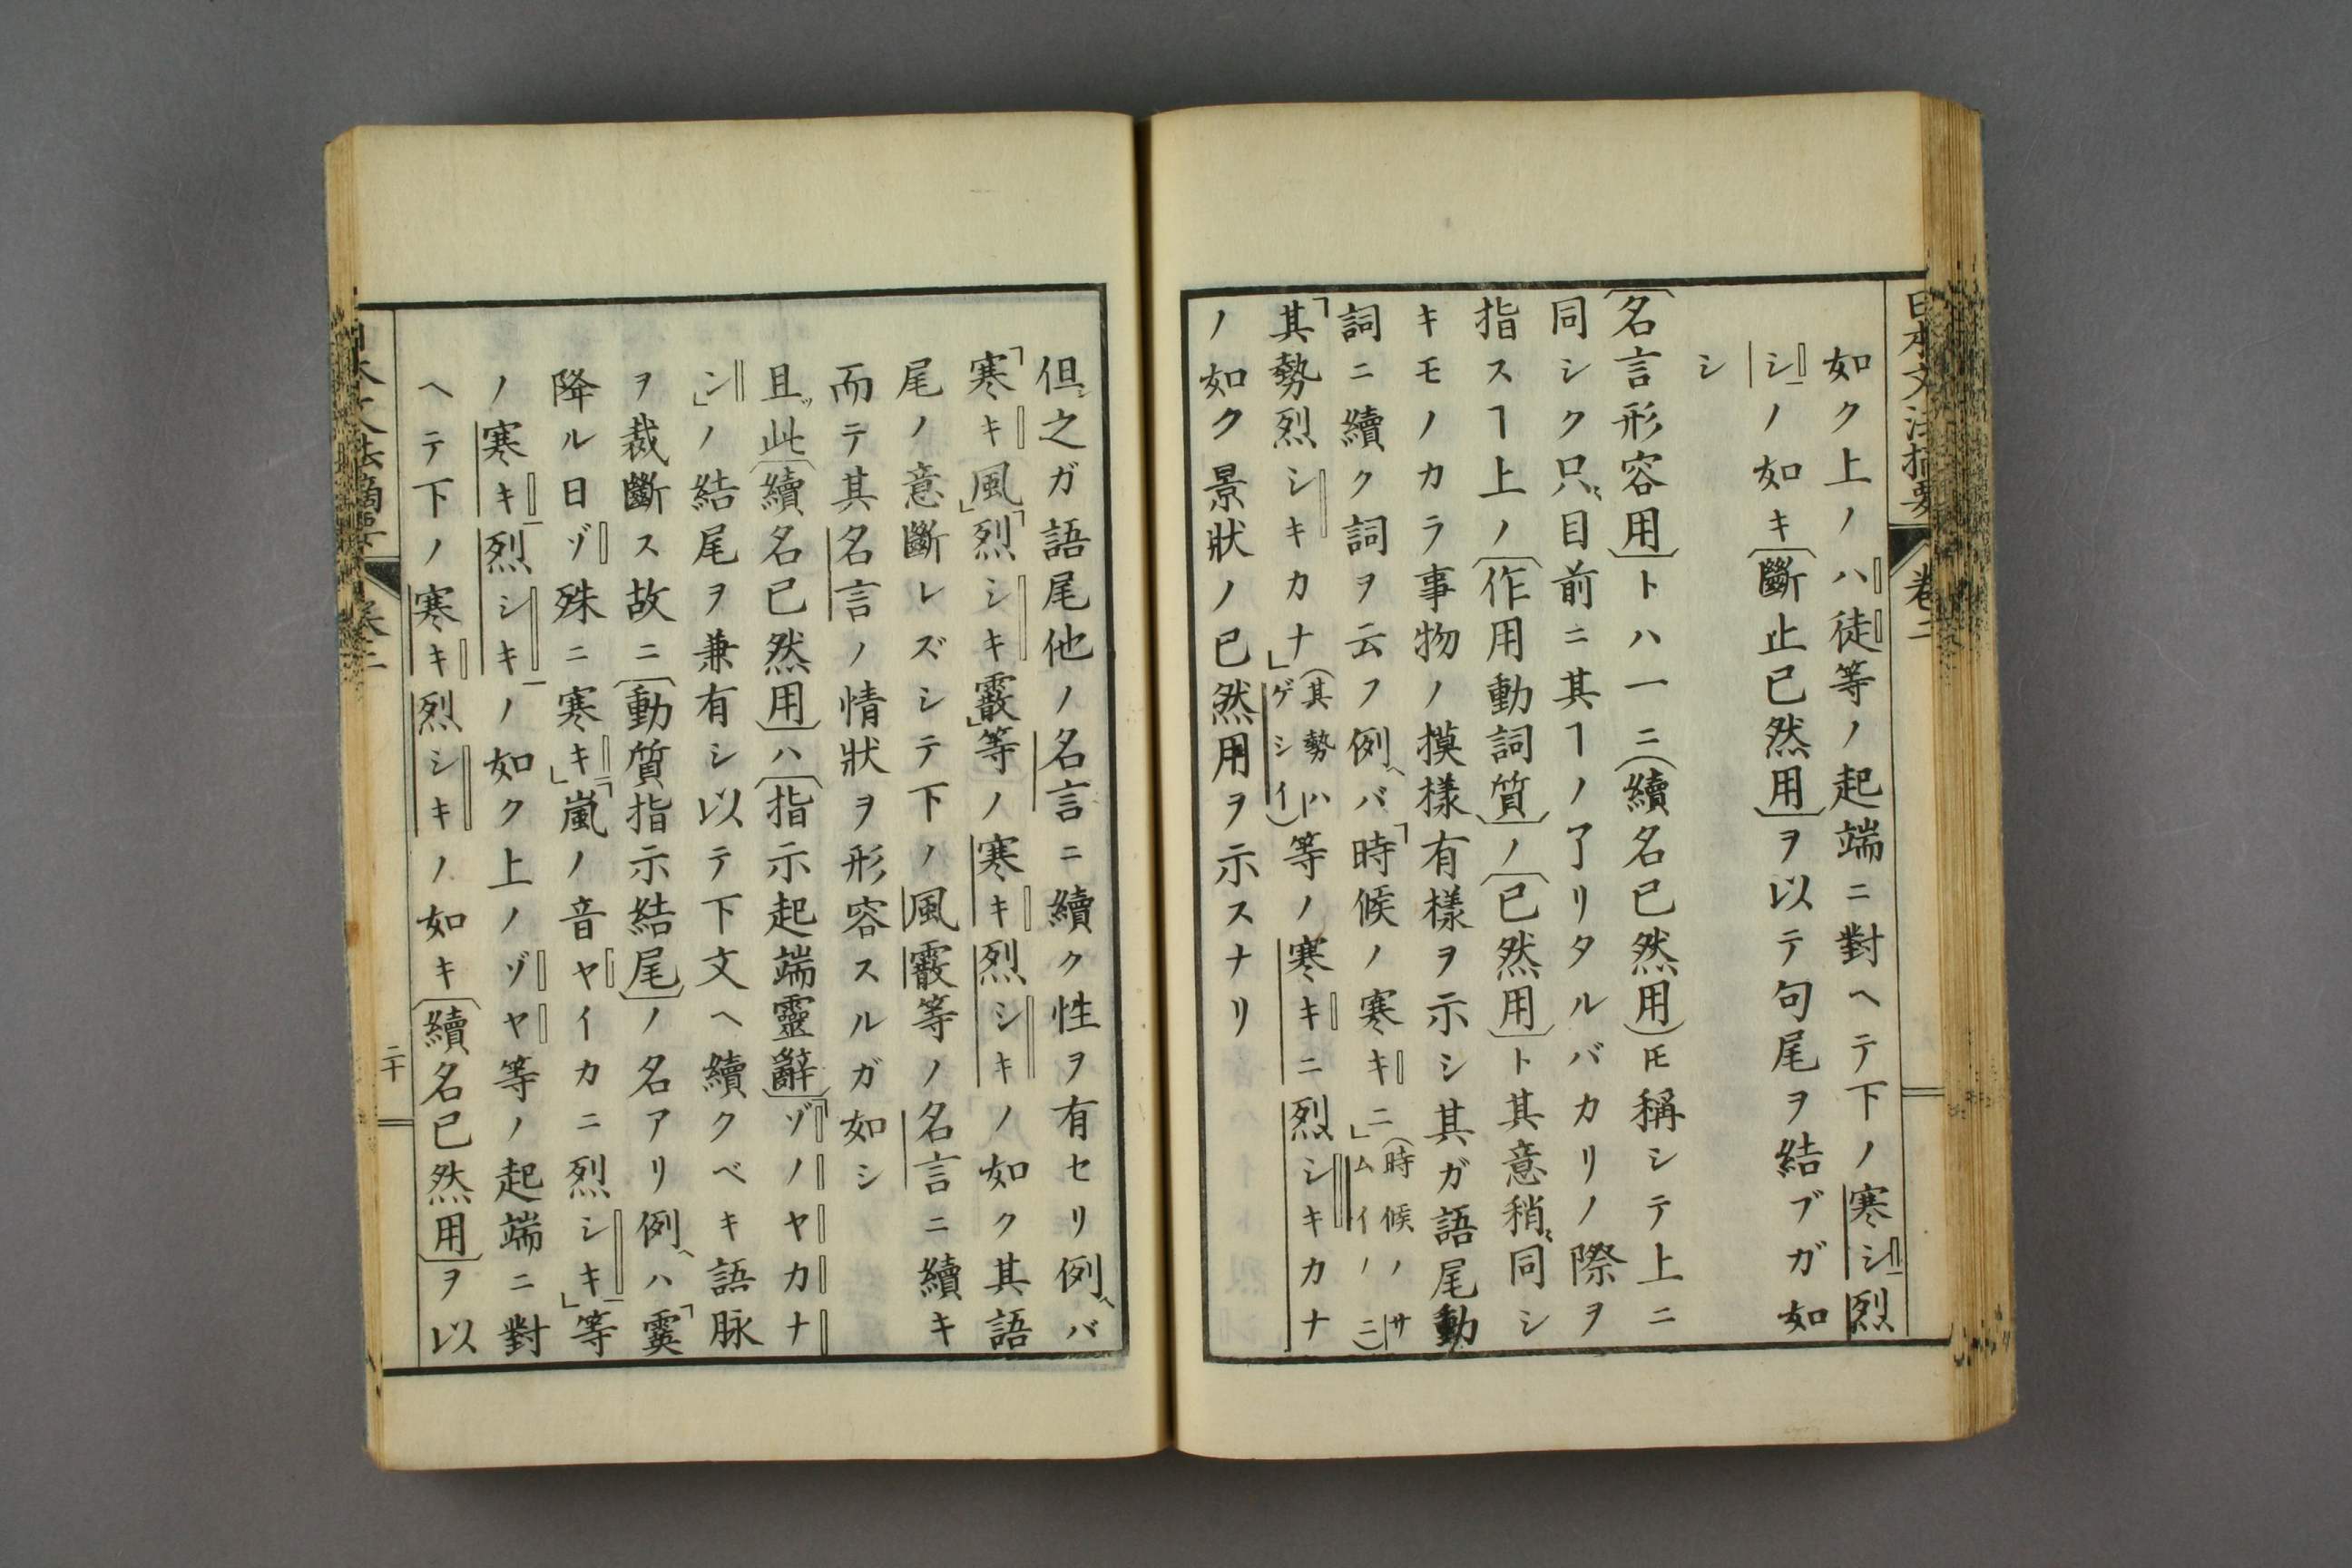 日本文法摘要
卷二
如ク上ノハ徒等ノ起端ニ對ヘテ下ノ寒シ烈
シノ如キ〔斷止已然用〕ヲ以テ句尾ヲ結ブガ如
シ
〔名言形容用〕トハ一ニ(續名已然用)𪜈稱シテ上ニ
同シク只〻目前ニ其ヿノ了リタルバカリノ際ヲ
指スヿ上ノ〔作用動詞質〕ノ〔已然用〕ト其意稍〻同シ
キモノカラ事物ノ摸樣有樣ヲ示シ其ガ語尾動
詞ニ續ク詞ヲ云フ例ヘバ「時候ノ寒キニ」(時候ノサムイノニ)
「其勢烈シキカナ」(其勢ハゲシイ)等ノ寒キニ烈シキカナ
ノ如ク景狀ノ已然用ヲ示スナリ
但シ之ガ語尾他ノ名言ニ續ク性ヲ有セリ例ヘバ
「寒キ風」「烈シキ霰」等ノ寒キ烈シキノ如ク其語
尾ノ意斷レズシテ下ノ風霰等ノ名言ニ續キ
而テ其名言ノ情狀ヲ形容スルガ如シ
且ツ此〔續名已然用〕ハ〔指示起端靈辭〕「ゾノヤカナ
シ」ノ結尾ヲ兼有シ以テ下文ヘ續クベキ語脉
ヲ裁斷ス故ニ〔動質指示結尾〕ノ名アリ例ヘハ「霙
降ル日ゾ殊ニ寒キ」「嵐ノ音ヤイカニ烈シキ」等
ノ寒キ烈シキノ如ク上ノゾヤ等ノ起端ニ對
ヘテ下ノ寒キ烈シキノ如キ〔續名已然用〕ヲ以
日本文法摘要
卷二
二十